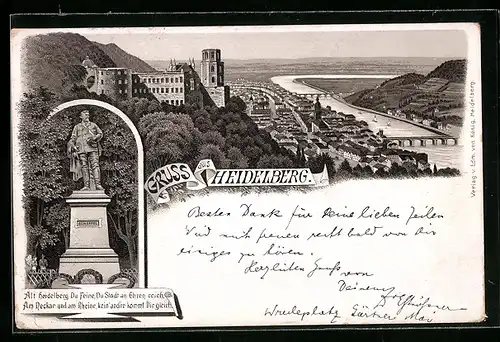 GRUSS AUS HEIDELBERG.
Verlag v. Edm. von König, Heidelberg
Alt Heidelberg Du Feine, Du Stadt an Ehren reich,
Am Neckar und am Rheine, kein' andre kommt Dir gleich.
Besten Dank für Deine lieben Zeilen
Und mich freuen recht bald von Dir
einiges zu hören.
Herzlichen Gruss von
Deinem